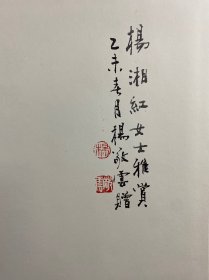 楊湘紅女士雅賞
乙未春月楊敬雲贈